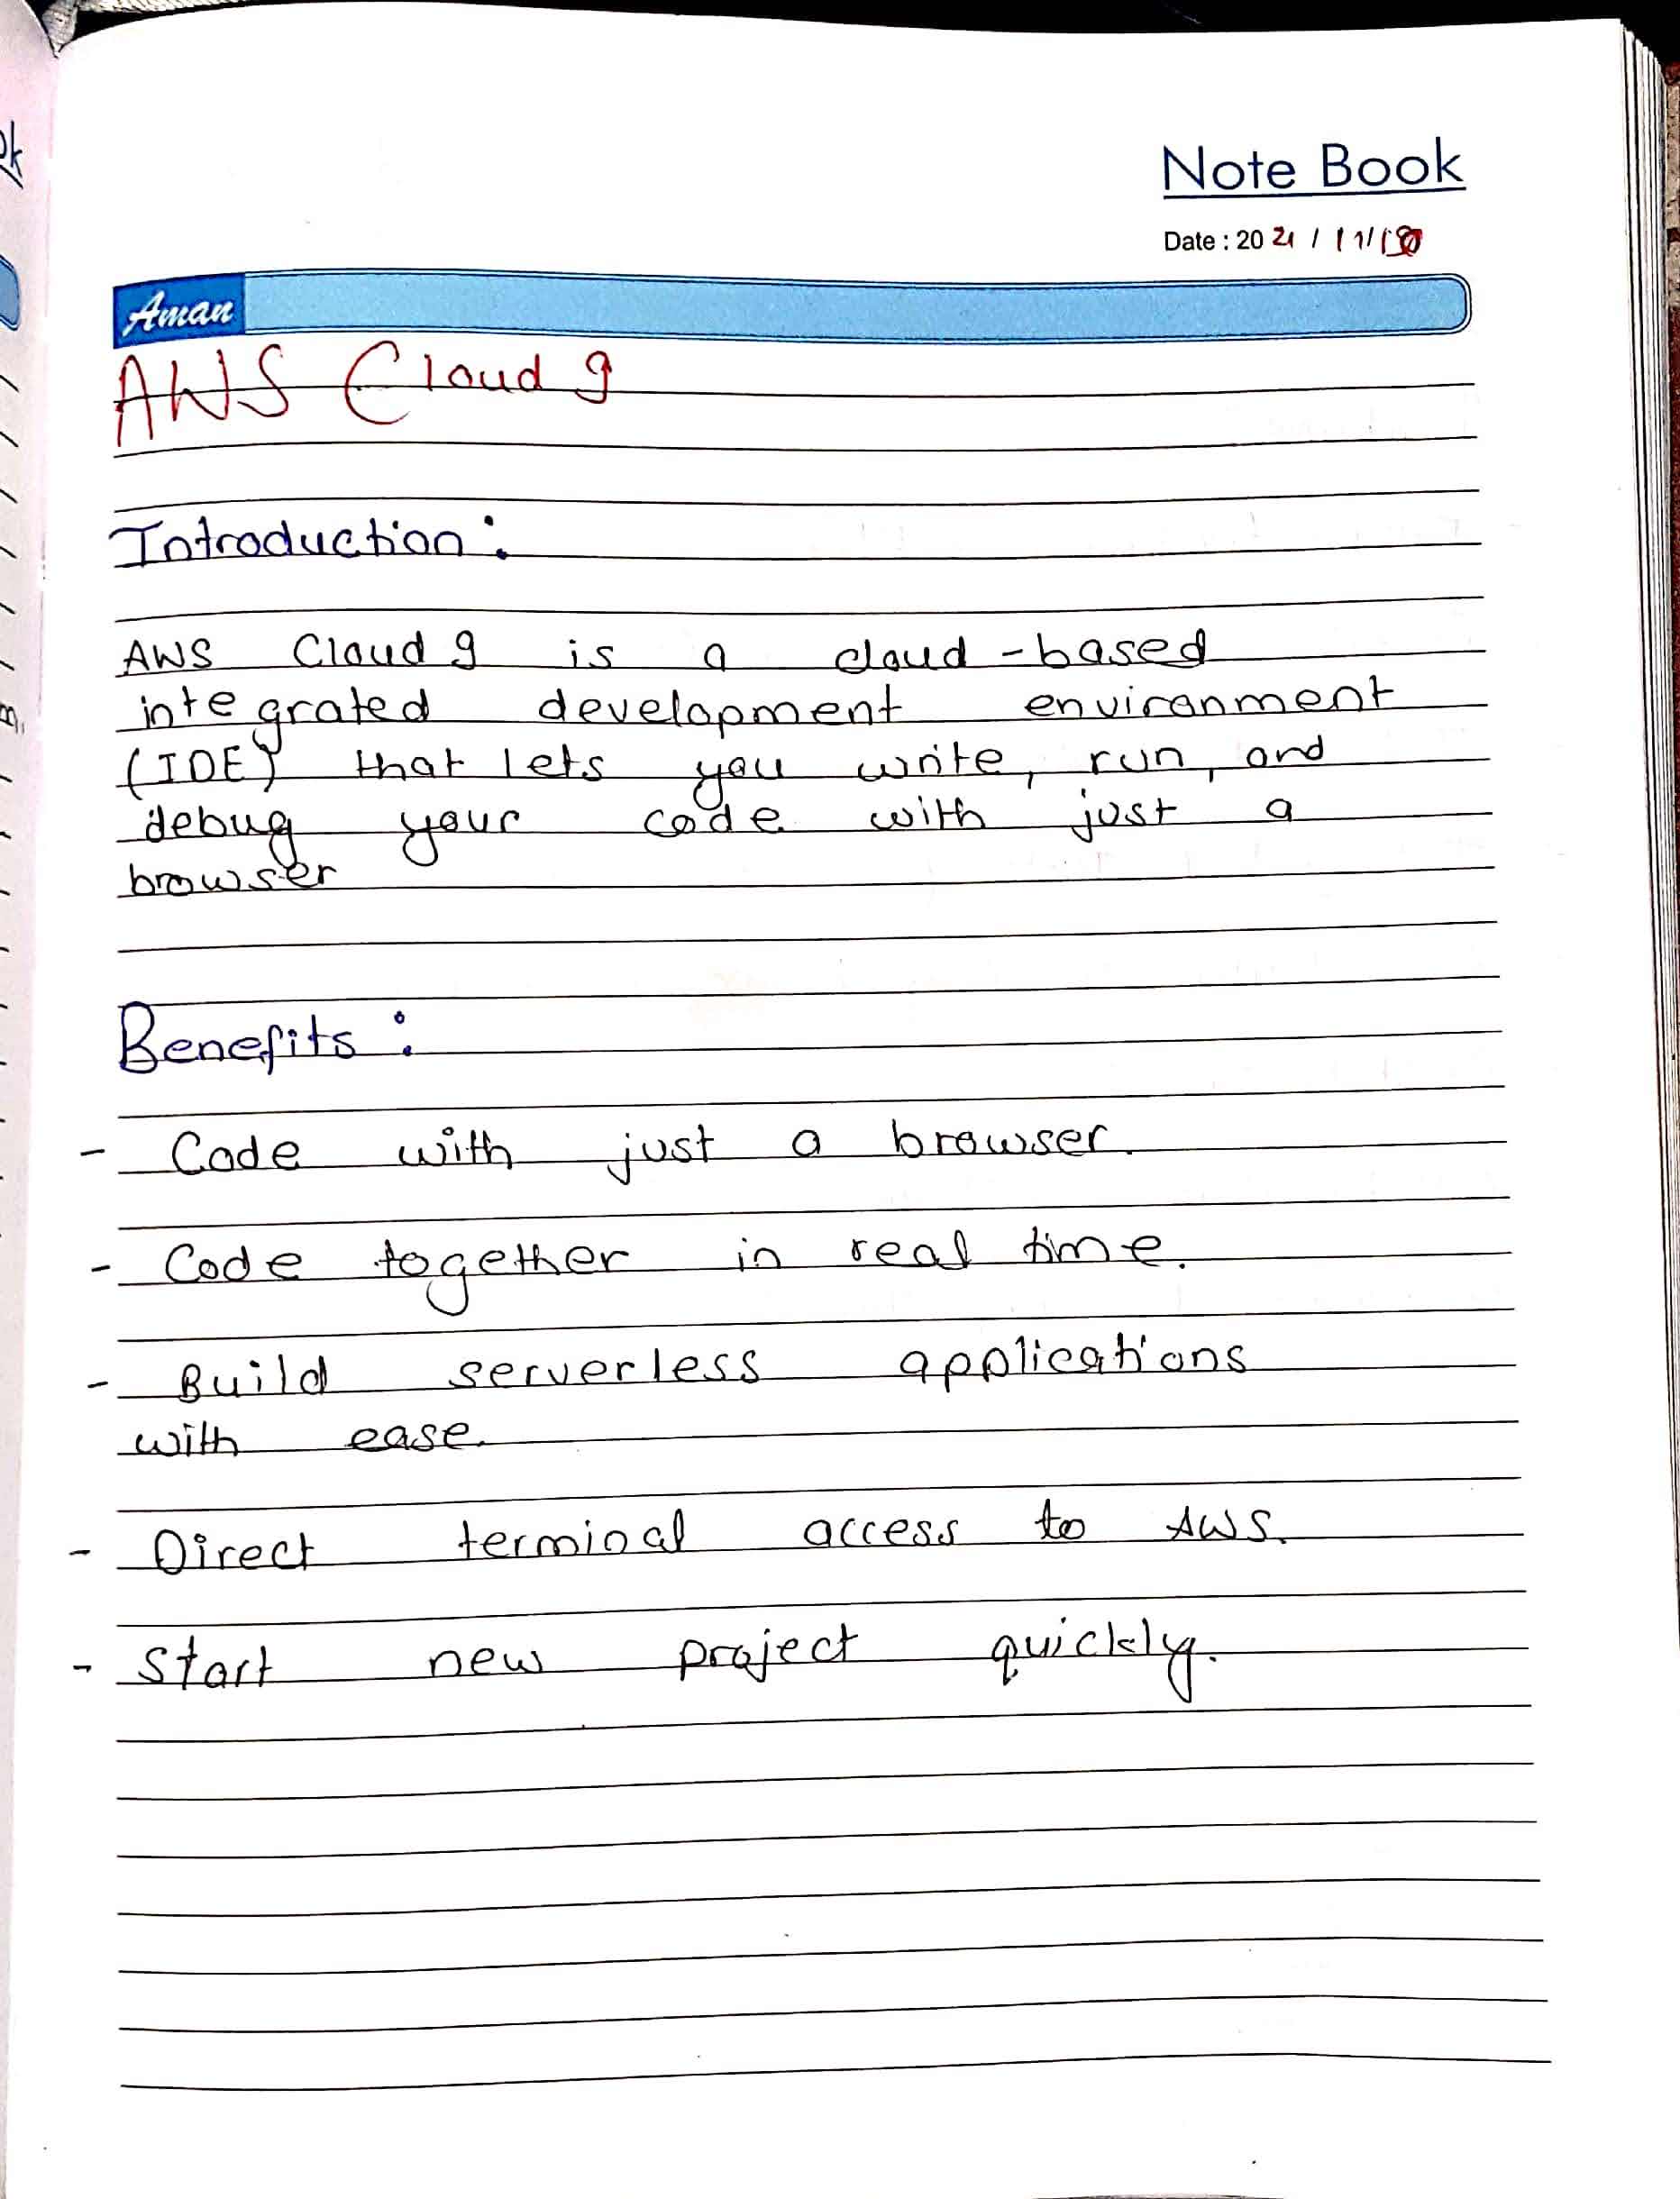 Note Book
Date : 2021 / 11/
Aman
AWS Cloud 9
Introduction :
AWS Cloud 9 is a cloud-based
integrated development environment
(IDE) that lets you write, run, and
debug your code with just a
browser
Benefits :
- Code with just a browser.
- Code together in real time.
- Build serverless applications
with ease.
- Direct terminal access to AWS.
- Start new project quickly.